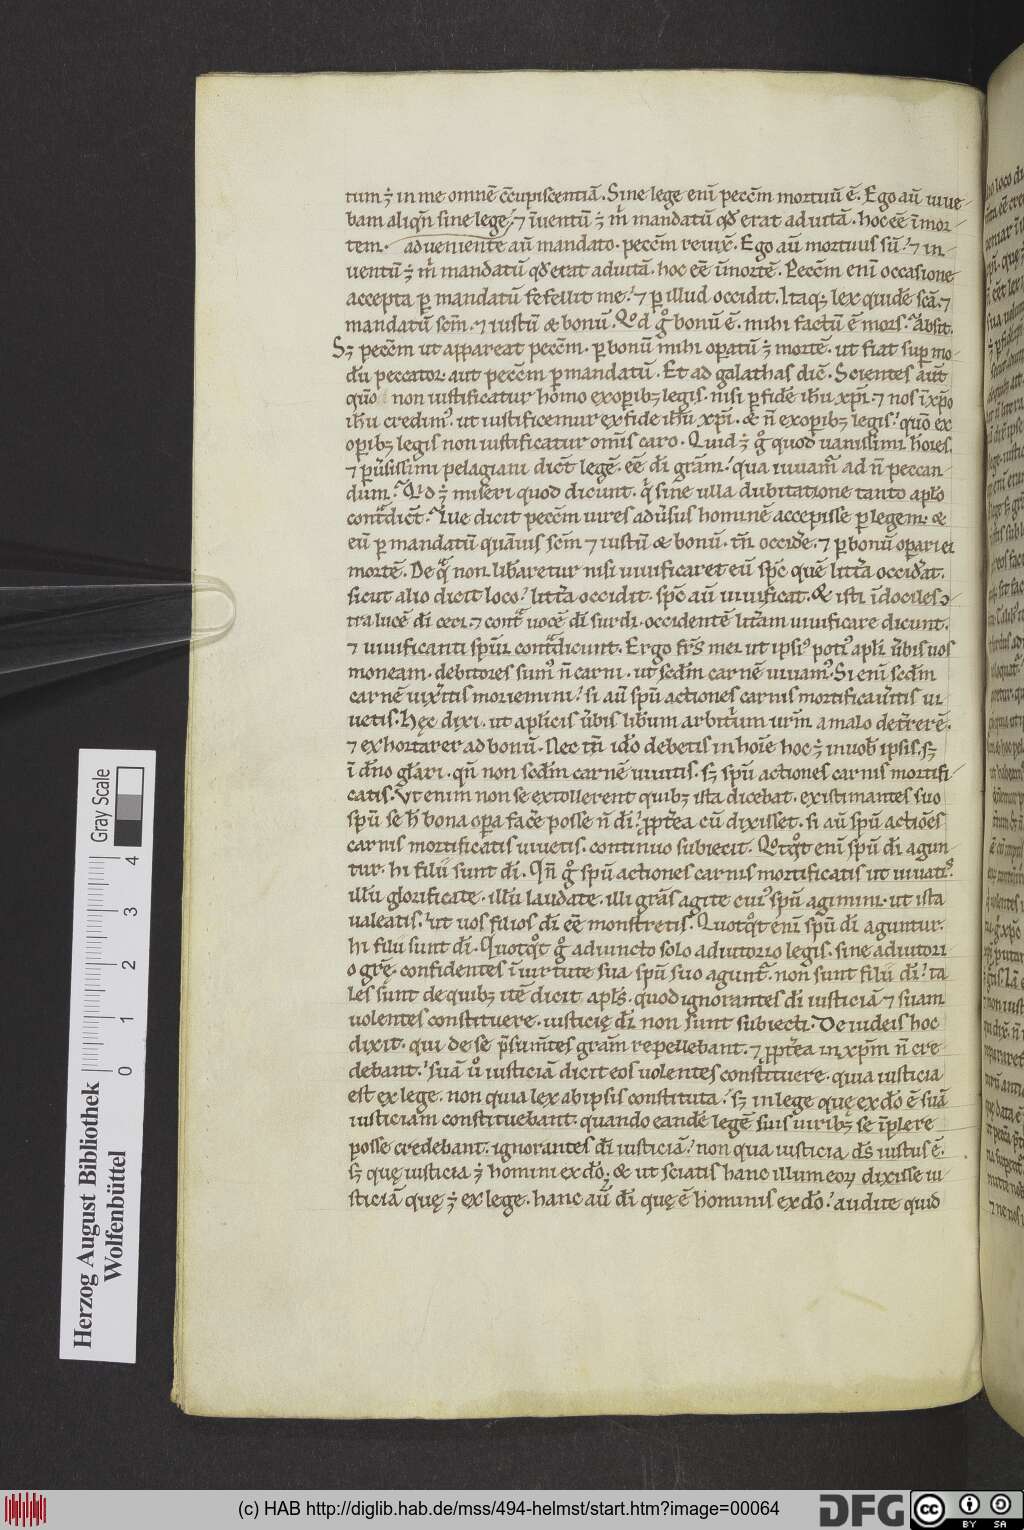 tum ÷ in me omnē c̄cupiscentiā. Sine lege enī peccm̄ mortuū ē. Ego aū uiue-
bam aliqn̄ sine lege ⁊ īuentū ÷ m̄ mandatū qd̄ erat ad uitā. hoc eē ī mor
tem. adueniente aū mandato. peccm̄ reuix̄. Ego aū mortuus sū. ⁊ in-
uentū ÷ m̄ mandatū qd̄ erat ad uitā. hoc eē ī mortē. Peccm̄ enī occasione
accepta ꝑ mandatū fefellit me. ⁊ ꝑ illud occidit. Itaq; lex quidē scā. ⁊
mandatū scm̄. ⁊ iustū & bonū. Qd̄ gͦ bonū ē. mihi factū ē mors. Absit.
Sꝫ peccm̄ ut appareat peccm̄. ꝑ bonū mihi oꝑatū ÷ mortē. ut fiat suꝑ mo-
dū peccator. aut peccm̄ ꝑ mandatū. Et ad galathas dic̄. Scientes aūt
qūo non iustificatur homo ex oꝑibꝫ legis. nisi ꝑ fidē ihū xp̄i. ⁊ nos ī xp̄o
ihū credim᾿. ut iustificemur ex fide ihū xp̄i. & n̄ ex oꝑibꝫ legis. quō ex
oꝑibꝫ legis non iustificatur om̄is caro. Quid ÷ gͦ quod uanissimi hoīes.
⁊ ꝑūsissimi pelagiani dict̄ legē. eē dī grām. qua iuuam̄ ad n̄ peccan
dum. Qͥd ÷ miseri quod dicunt. qͥ sine ulla dubitatione tanto aplo
contᵃdict̄. Ille dicit peccm̄ uires adūsus hominē accepisse ꝑ legem. &
eū ꝑ mandatū quāuis scm̄ ⁊ iustū & bonū. tn̄ occidē. ⁊ ꝑ bonū oꝑari ei
mortē. De qͣ non libaretur nisi uiuificaret eū spc̄ quē littā occidat.
sicut alio dicit loco. littā occidit. spc̄ aū uiuificat. & isti īdociles ↄ
tra lucē dī ceci. ⁊ contᵃ uocē dī surdi. occidentē litām uiuificare dicunt.
⁊ uiuificanti spūi contᵃdicunt. Ergo frs̄ mei ut ipsi᾿ poti᾿ apli ūbis uos
moneam. debitores sum᾿ n̄ carni. ut scdm̄ carnē uiuam᾿. Si enī scdm̄
carnē uixītis moriemini. si aū spū actiones carnis mortificauītis ui
uetis. Hęc dixi. ut aplicis ūbis libum arbitum urm̄ a malo deterrerē.
⁊ exhortarer ad bonū. Nec tn̄ idō debetis in hoīe hoc ÷ in uob̄ ipsis. sꝫ
ī dn̄o glāri. qn̄ non scdm̄ carnē uiuitis. sꝫ spū actiones carnis mortifi
catis. Ut enim non se extollerent quibꝫ ista dicebat. existimantes suo
spū se h̄ bona oꝑa facē posse n̄ dī. ꝓpt̄ea cū dixisset. si aū spū actiōes
carnis mortificatis uiuetis. continuo subiecit. Qͦtqͦt enī spū dī agun
tur. hi filii sunt dī. Qn̄ gͦ spū actiones carnis mortificatis ut uiuatis.
illū glorificate. illū laudate. illi grās agite cui᾿ spū agimini. ut ista
ualeatis. ut uos filios dī eē monstretis. Quotqͦt enī spū dī aguntur.
hi filii sunt dī. Quotqͦt gͦ adiuncto solo adiutorio legis. sine adiutori
o grē. confidentes ī uirtute sua spū suo agunt̄. non sunt filii dī. ta
les sunt de quibꝫ itē dicit apls̄. quod ignorantes dī iusticiā ⁊ suam
uolentes constituere. iusticię dī non sunt subiecti. De iudeis hoc
dixit. qui de se p̄sum̄tes grām repellebant. ⁊ ꝓpt̄ea in xpm̄ n̄ cre
debant. Suā ū iusticiā dicit eos uolentes constituere. quia iusticia
est ex lege. non quia lex ab ipsis constituta. sꝫ in lege quę ex dō ē suā
iusticiam constituebant. quando eandē legē suis uiribꝫ se īplere
posse credebant. ignorantes dī iusticiā. non qua iusticia ds̄ iustus ē.
sꝫ quę iusticia ÷ homini ex dō. & ut sciatis hanc illum eoꝝ dixisse iu
sticiā quę ÷ ex lege. hanc aū dī quę ē hominis ex dō. audite quid
Gray Scale
0 1 2 3 4
Herzog August Bibliothek
Wolfenbüttel
(c) HAB http://diglib.hab.de/mss/494-helmst/start.htm?image=00064
DFG
cc BY SA